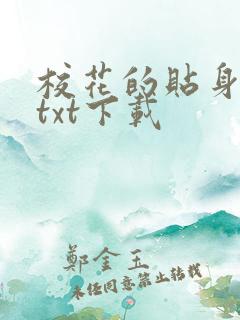 校花的貼身
txt下載
鄭金玉
未经同意禁止转载